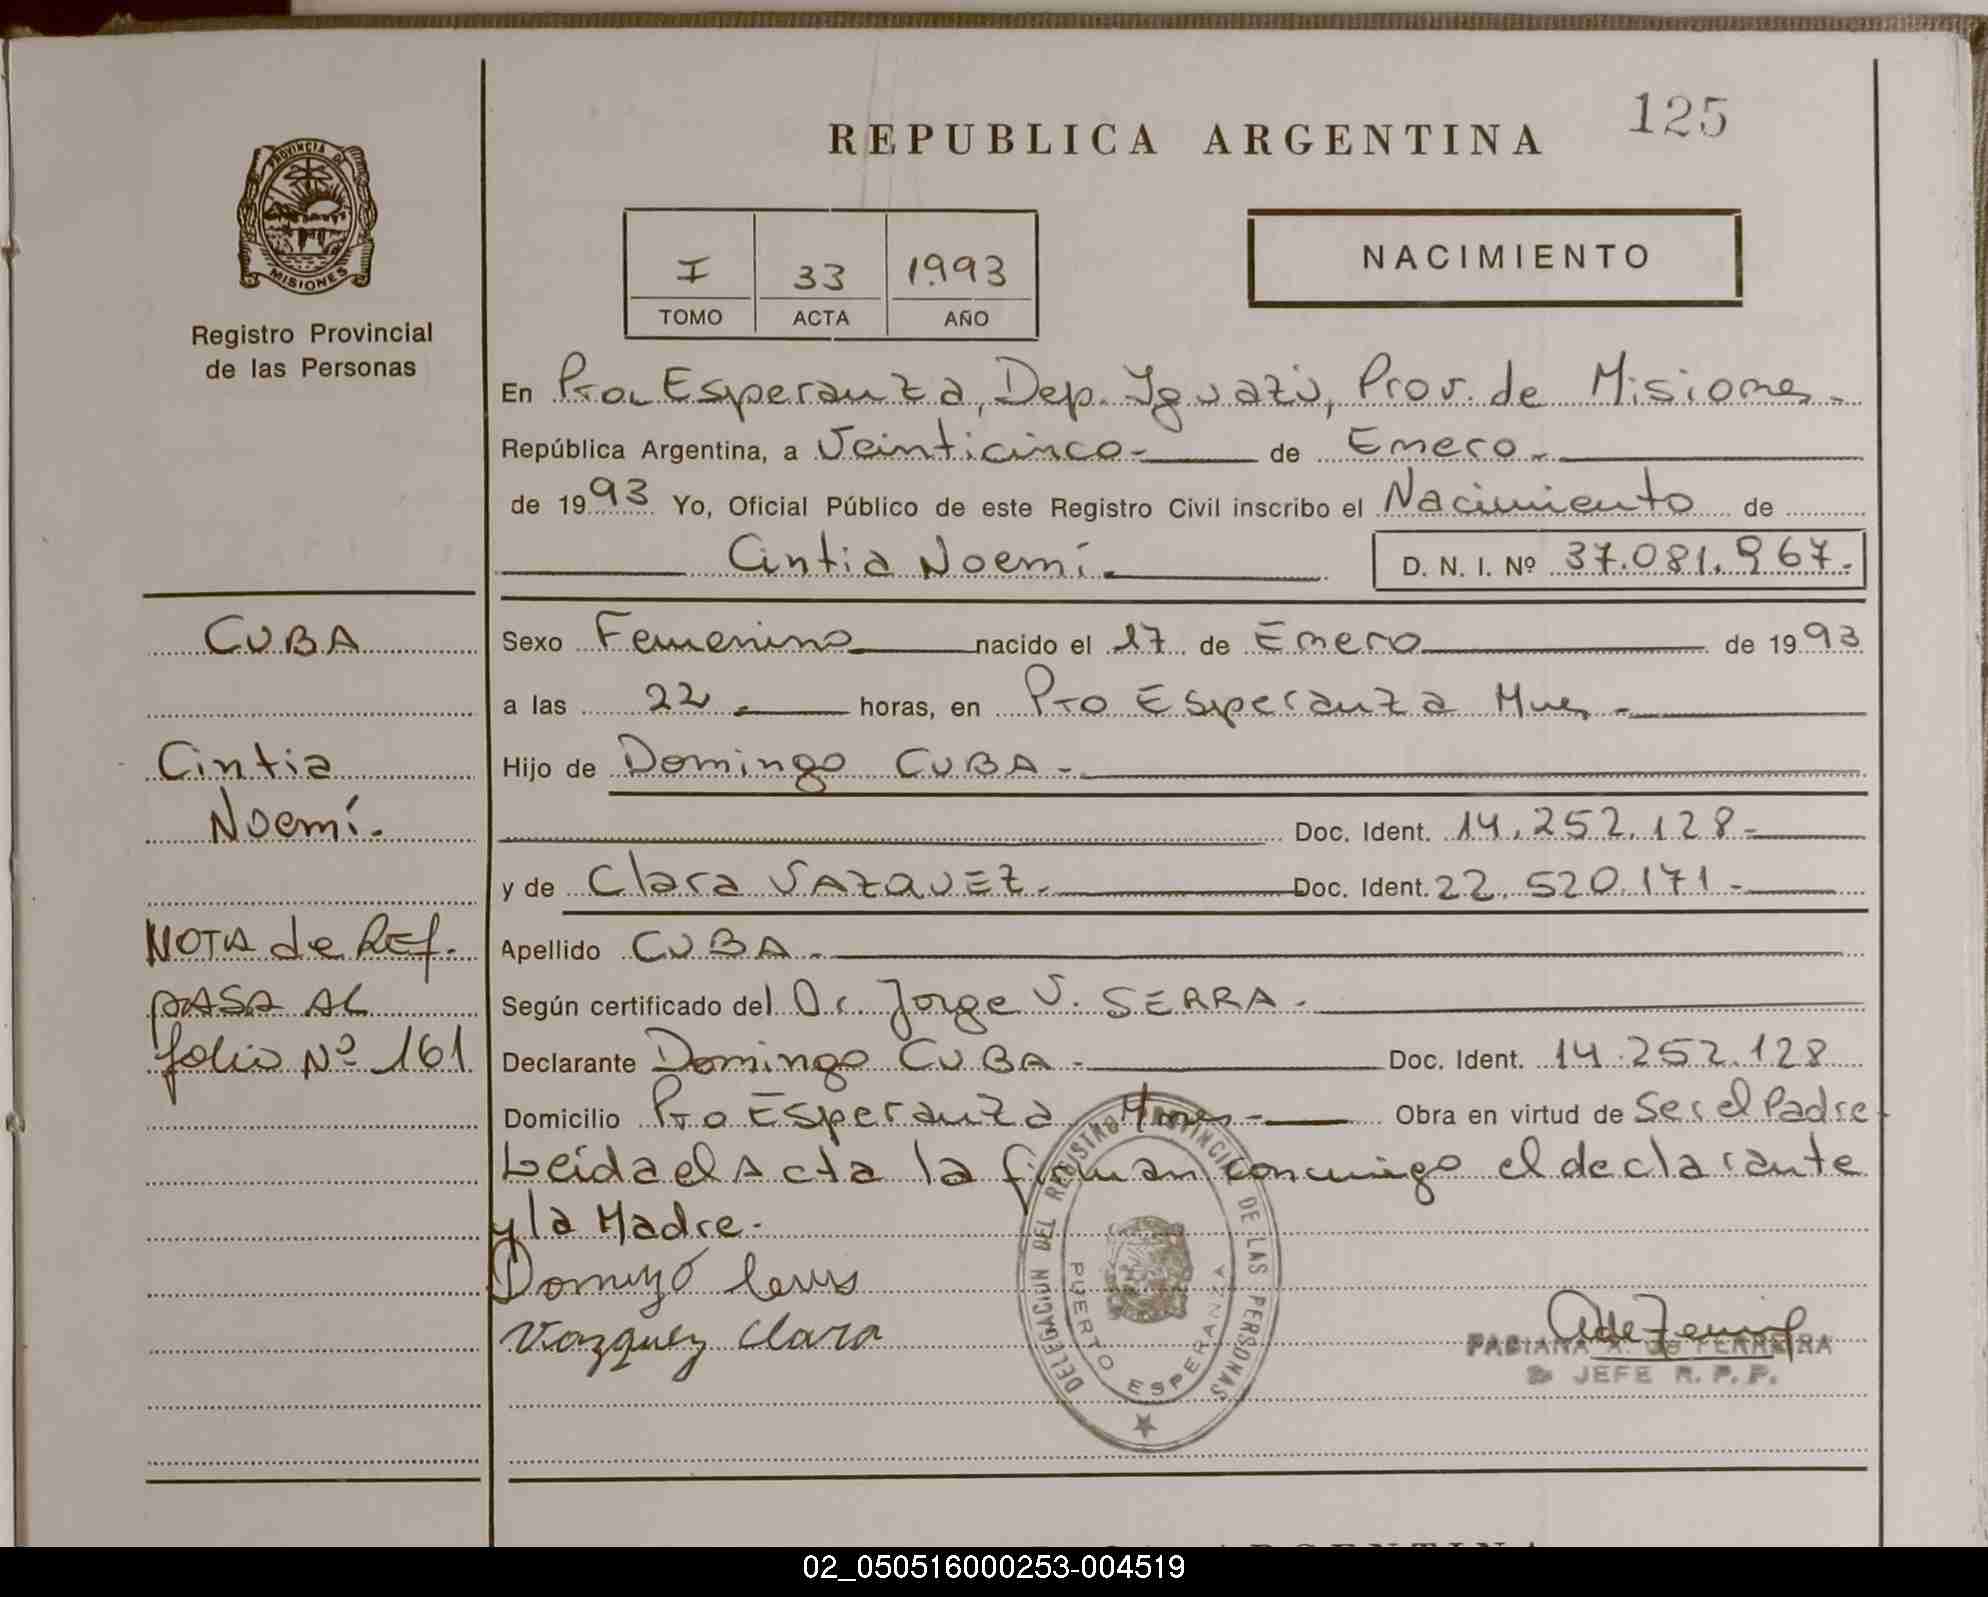 125
REPUBLICA ARGENTINA
PROVINCIA DE
MISIONES
Registro Provincial
de las Personas
I 33 1.993
TOMO ACTA AÑO
NACIMIENTO
En Pto. Esperanza, Dep. Iguazú, Prov. de Misiones.-
República Argentina, a Veinticinco- de Enero.-
de 1993 Yo, Oficial Público de este Registro Civil inscribo el Nacimiento de
Cintia Noemí.- D. N. I. Nº 37.081.967.-
CUBA
Cintia
Noemí.-
NOTA de REF.
PASA AL
folio Nº 161
Sexo Femenino nacido el 17 de Enero de 1993
a las 22.- horas, en Pto Esperanza Mnes.-
Hijo de Domingo CUBA.-
Doc. Ident. 14.252.128-
y de Clara VAZQUEZ.- Doc. Ident. 22.520.171.-
Apellido CUBA.-
Según certificado del Dr. Jorge V. SERRA.-
Declarante Domingo CUBA.- Doc. Ident. 14.252.128
Domicilio Pto Esperanza Mnes- Obra en virtud de Ser el Padre
Leída el Acta la firman conmigo el declarante
y la Madre.-
Domingo
Vazquez Clara
DELEGACION DEL REGISTRO PROVINCIAL DE LAS PERSONAS
PUERTO ESPERANZA
FABIANA A. de FERREIRA
JEFE R. P. P.
ARGENTINA
02_050516000253-004519